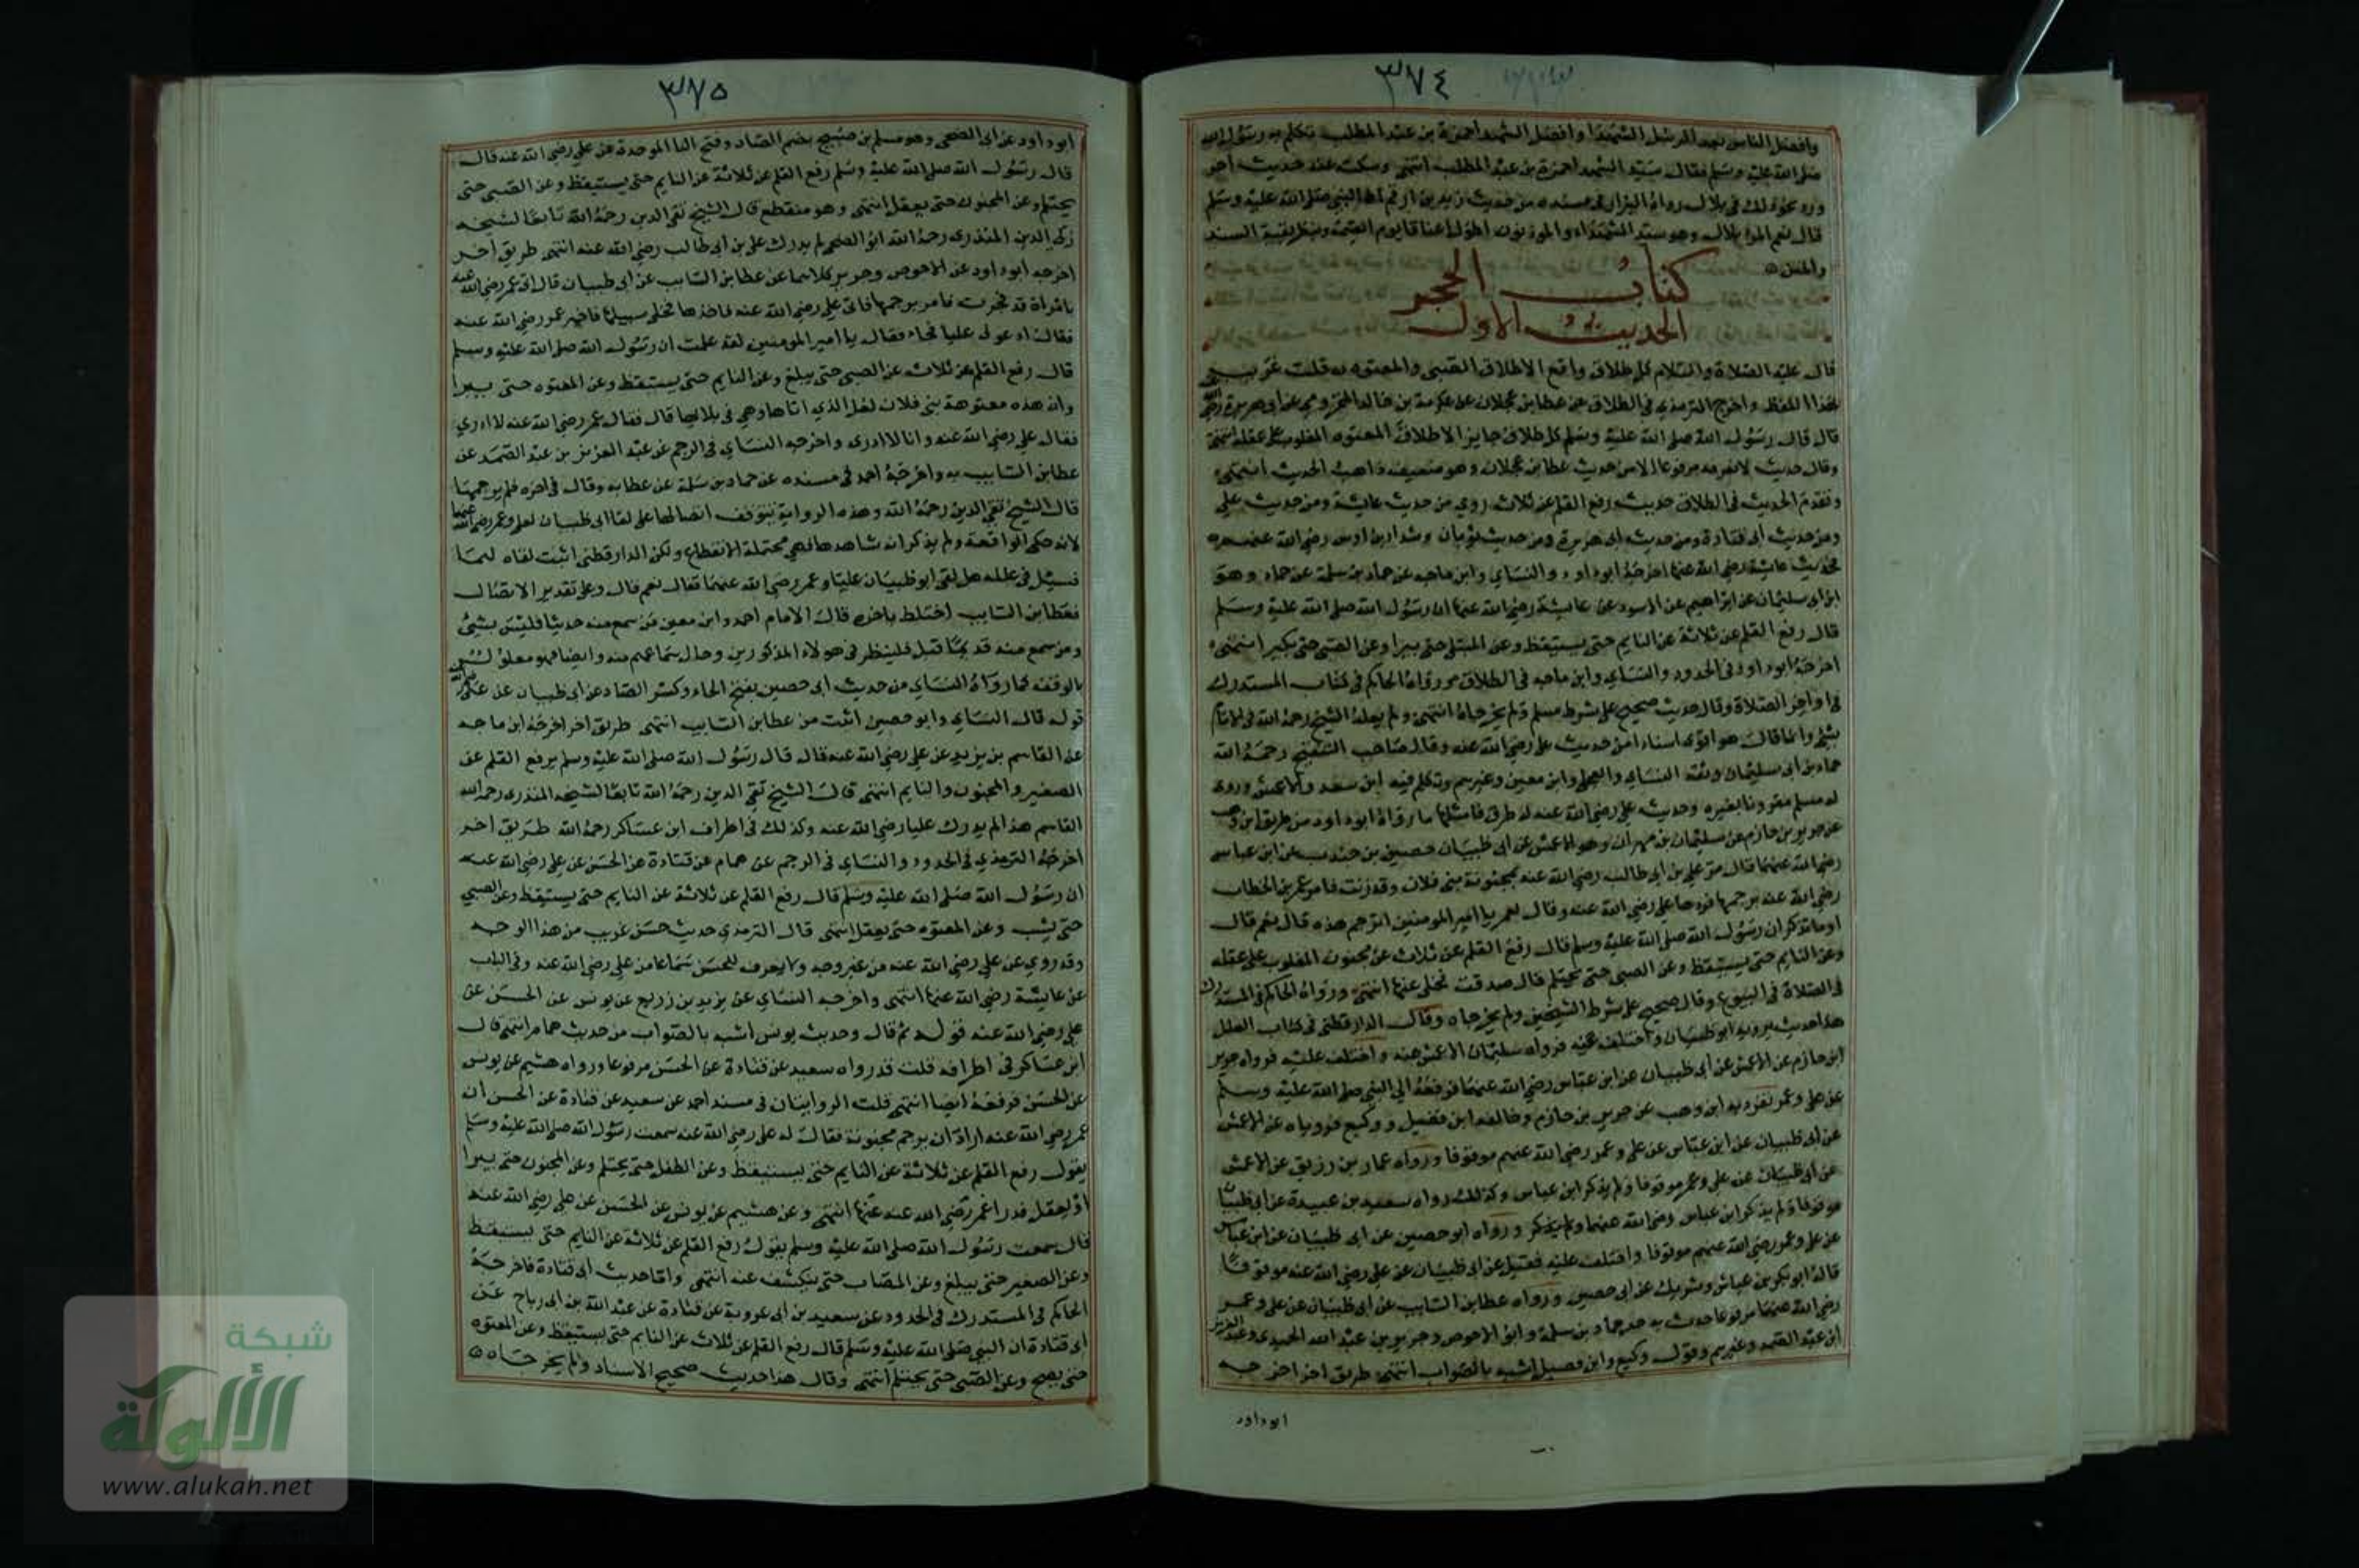 ٣٧٤
وافضل الناس بعد المرسل الشهدا وافضل الشهدا حمزة بن عبد المطلب تكلم به رسول الله
صلى الله عليه وسلم فقال سيد الشهدا حمزة بن عبد المطلب انتهى وسكت عنه حديث آخر
ورد نحو ذلك في بلال رواه البزار في مسنده من حديث زيد بن ارقم ان النبي صلى الله عليه وسلم
قال نعم المرء بلال وهو سيد الشهداء والموذنون اطول اعناقا يوم القيمة
كتاب الحجر
الحديث الاول
قال عليه الصلاة والسلام كل طلاق واقع الا طلاق الصبي والمعتوه قلت غريب
بهذا اللفظ واخرج الترمذي في الطلاق عن عطا بن عجلان عن عكرمة بن خالد المخزومي عن ابي هريرة
قال قال رسول الله صلى الله عليه وسلم كل طلاق جايز الا طلاق المعتوه المغلوب على عقله انتهى
وقال حديث لا نعرفه مرفوعا الا من حديث عطا بن عجلان وهو ضعيف ذاهب الحديث انتهى
وتقدم الحديث في الطلاق حديث رفع القلم عن ثلاث روي من حديث عايشة ومن حديث علي
ومن حديث ابي قتادة ومن حديث ابي هريرة ومن حديث ثوبان وشداد بن اوس رضي الله عنهم
فحديث عايشة رضي الله عنها اخرجه ابو داود والنساي وابن ماجه عن حماد بن سلمة عن حماد وهو
ابن ابي سليمان عن ابراهيم عن الاسود عن عايشة رضي الله عنها ان رسول الله صلى الله عليه وسلم
قال رفع القلم عن ثلاثة عن النايم حتى يستيقظ وعن المبتلى حتى يبرا وعن الصبي حتى يكبر انتهى
اخرجه ابو داود في الحدود والنساي وابن ماجه في الطلاق ورواه الحاكم في كتاب المستدرك
في اواخر الصلاة وقال حديث صحيح على شرط مسلم ولم يخرجاه انتهى ولم يعله الشيخ رحمه الله في الامام
بشيء وانما قال هو اقوى اسنادا من حديث علي رضي الله عنه وقال صاحب التنقيح رحمه الله
حماد بن ابي سليمان وثقه النساي والعجلي وابن معين وغيرهم وتكلم فيه ابن سعد والاعمش وروى
له مسلم مقرونا بغيره وحديث علي رضي الله عنه له طرق فامثلها ما رواه ابو داود من طريق ابن وهب
عن جرير بن حازم عن سليمان بن مهران وهو الاعمش عن ابي ظبيان حصين بن جندب عن ابن عباس
رضي الله عنهما قال مر علي بن ابي طالب رضي الله عنه بمجنونة بني فلان وقد زنت فامر عمر بن الخطاب
رضي الله عنه برجمها فردها علي رضي الله عنه وقال لعمر يا امير المومنين اترجم هذه قال نعم قال
اوما تذكر ان رسول الله صلى الله عليه وسلم قال رفع القلم عن ثلاث عن مجنون المغلوب على عقله
وعن النايم حتى يستيقظ وعن الصبي حتى يحتلم قال صدقت فخلى عنها انتهى ورواه الحاكم في المستدرك
في الصلاة في البيوع وقال صحيح على شرط الشيخين ولم يخرجاه وقال الدارقطني في كتاب العلل
هذا حديث يرويه ابو ظبيان واختلف عنه فرواه سليمان الاعمش عنه واختلف عليه فرواه جرير
ابن حازم عن الاعمش عن ابي ظبيان عن ابن عباس رضي الله عنهما فرفعه الى النبي صلى الله عليه وسلم
عن علي وعمر تفرد به ابن وهب عن جرير بن حازم وخالفه ابن فضيل ووكيع فروياه عن الاعمش
عن ابي ظبيان عن ابن عباس عن علي وعمر رضي الله عنهم موقوفا ورواه عمار بن رزيق عن الاعمش
عن ابي ظبيان عن علي وعمر موقوفا ولم يذكر ابن عباس وكذلك رواه سعد بن عبيدة عن ابي ظبيان
موقوفا ولم يذكر ابن عباس رضي الله عنهما ورواه ابو حصين عن ابي ظبيان عن ابن عباس
عن علي وعمر رضي الله عنهم موقوفا واختلف عليه فقيل عن ابي ظبيان عن علي رضي الله عنه موقوفا
قاله ابو بكر بن عياش وشريك عن ابي حصين ورواه عطا بن السايب عن ابي ظبيان عن علي وعمر
رضي الله عنهما مرفوعا حدث به عنه حماد بن سلمة وابو الاحوص وجرير بن عبد الحميد وعبد العزيز
ابن عبد الصمد وغيرهم وقول وكيع وابن فضيل اشبه بالصواب انتهى طريق اخر اخرجه
ابو داود
٣٧٥
ابو داود عن ابي الضحى وهو مسلم بن صبيح بضم الصاد وفتح البا الموحدة عن علي رضي الله عنه قال
قال رسول الله صلى الله عليه وسلم رفع القلم عن ثلاثة عن النايم حتى يستيقظ وعن الصبي حتى
يحتلم وعن المجنون حتى يعقل انتهى وهو منقطع قال الشيخ تقي الدين رحمه الله تابعا لشيخه
زكي الدين المنذري رحمه الله ابو الضحى لم يدرك علي بن ابي طالب رضي الله عنه انتهى طريق اخر
اخرجه ابو داود عن ابي الاحوص وجرير كلاهما عن عطا بن السايب عن ابي ظبيان قال اتى عمر رضي الله عنه
بامراة قد فجرت فامر برجمها فاتى علي رضي الله عنه فاخذها فخلى سبيلها فاخبر عمر رضي الله عنه
فقال ادعو لي عليا فجاء فقال يا امير المومنين لقد علمت ان رسول الله صلى الله عليه وسلم
قال رفع القلم عن ثلاث عن الصبي حتى يبلغ وعن النايم حتى يستيقظ وعن المعتوه حتى يبرا
وان هذه معتوهة بني فلان لعل الذي اتاها وهي في بلائها قال فقال عمر رضي الله عنه لا ادري
فقال علي رضي الله عنه وانا لا ادرى واخرجه النساي في الرجم عن عبد العزيز بن عبد الصمد عن
عطا بن السايب به واخرجه احمد في مسنده عن حماد بن سلمة عن عطا به وقال في اخره فلم يرجمها
قال الشيخ تقي الدين رحمه الله وهذه الرواية يتوقف اتصالها على لقا ابي ظبيان لعلي وعمر رضي الله عنهما
لانه حكى الواقعة ولم يذكر انه شاهدها فهي محتملة الانقطاع ولكن الدارقطني اثبت لقاه لهما
فسئل في علله هل لقي ابو ظبيان عليا وعمر رضي الله عنهما فقال نعم قال وعلى تقدير الاتصال
فعطا بن السايب اختلط باخره قال الامام احمد وابن معين من سمع منه حديثا فليس بشئ
ومن سمع منه قديما قبل فلينظر في هولاء المذكورين وحال سماعهم منه وايضا فهو معلول
بالوقف كما رواه النساي من حديث ابي حصين بفتح الحاء وكسر الصاد عن ابي ظبيان عن علي
قوله قال النساي وابو حصين اثبت من عطا بن السايب انتهى طريق اخر اخرجه ابن ماجه
عن القاسم بن يزيد عن علي رضي الله عنه قال قال رسول الله صلى الله عليه وسلم يرفع القلم عن
الصغير والمجنون والنايم انتهى قال الشيخ تقي الدين رحمه الله تابعا لشيخه المنذرى رحمه الله
القاسم هذا لم يدرك عليا رضي الله عنه وكذلك في اطراف ابن عساكر رحمه الله طريق اخر
اخرجه الترمذي في الحدود والنساي في الرجم عن همام عن قتادة عن الحسن عن علي رضي الله عنه
ان رسول الله صلى الله عليه وسلم قال رفع القلم عن ثلاثة عن النايم حتى يستيقظ وعن الصبي
حتى يشب وعن المعتوه حتى يعقل انتهى قال الترمذي حديث حسن غريب من هذا الوجه
وقد روي عن علي رضي الله عنه من غير وجه ولا يعرف للحسن سماعا من علي رضي الله عنه وفي الباب
عن عايشة رضي الله عنها انتهى واخرجه النساي عن يزيد بن زريع عن يونس عن الحسن عن
علي رضي الله عنه قوله ثم قال وحديث يونس اشبه بالصواب من حديث همام انتهى قال
ابن عساكر في اطرافه قلت قد رواه سعيد عن قتادة عن الحسن مرفوعا ورواه هشيم عن يونس
عن الحسن فرفعه ايضا انتهى قلت الروايتان في مسند احمد عن سعيد عن قتادة عن الحسن ان
عمر رضي الله عنه اراد ان يرجم مجنونة فقال له علي رضي الله عنه سمعت رسول الله صلى الله عليه وسلم
يقول رفع القلم عن ثلاثة عن النايم حتى يستيقظ وعن الطفل حتى يحتلم وعن المجنون حتى يبرا
او يعقل فدرا عمر رضي الله عنه عنها انتهى وعن هشيم عن يونس عن الحسن عن علي رضي الله عنه
قال سمعت رسول الله صلى الله عليه وسلم يقول رفع القلم عن ثلاثة عن النايم حتى يستيقظ
وعن الصغير حتى يبلغ وعن المصاب حتى ينكشف عنه انتهى واما حديث ابي قتادة فاخرجه
الحاكم في المستدرك في الحدود عن سعيد بن ابي عروبة عن قتادة عن عبد الله بن ابي رباح عن
ابي قتادة ان النبي صلى الله عليه وسلم قال رفع القلم عن ثلاث عن النايم حتى يستيقظ وعن المعتوه
حتى يصح وعن الصبي حتى يحتلم انتهى وقال هذا حديث صحيح الاسناد ولم يخرجاه
شبكة
الألوكة
www.alukah.net